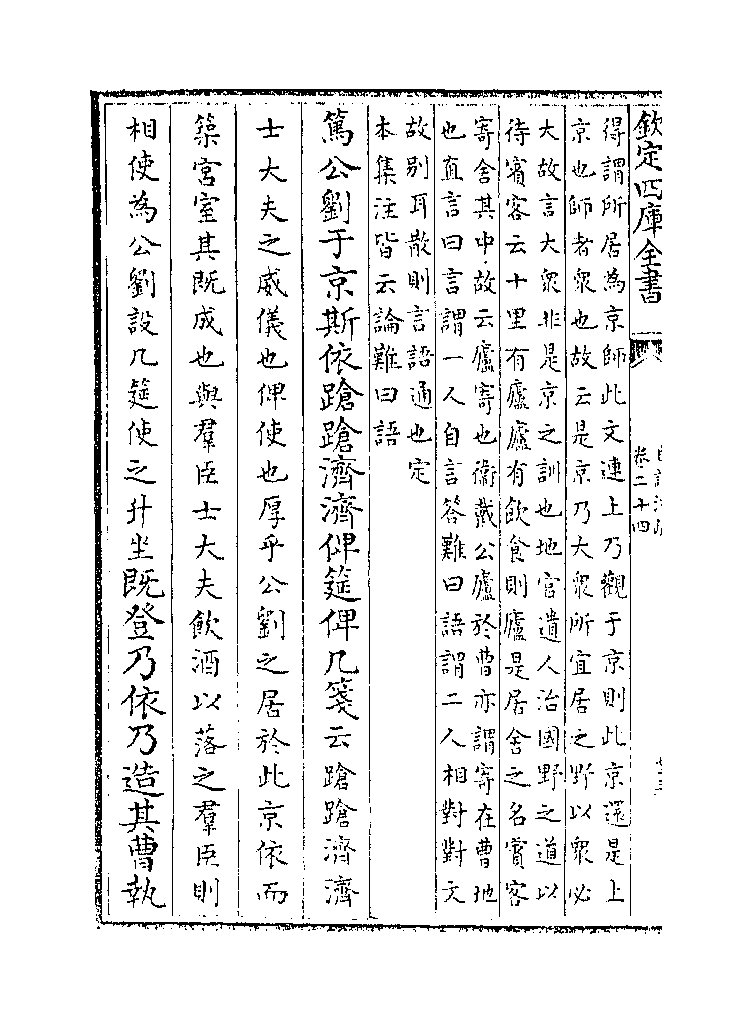 欽定四庫全書
卷二十四
得謂所居為京師此文連上乃觀于京則此京還是上
京也師者衆也故云是京乃大衆所宜居之野以衆必
大故言大衆非是京之訓也地官遺人治國野之道以
待賓客云十里有廬廬有飲食則廬是居舍之名賓客
寄舍其中故云廬寄也衛戴公廬於曹亦謂寄在曹地
也直言曰言謂一人自言答難曰語謂二人相對對文
故别耳散則言語通也定
本集注皆云論難曰語
篤公劉于京斯依蹌蹌濟濟俾筵俾几箋云蹌蹌濟濟
士大夫之威儀也俾使也厚乎公劉之居於此京依而
築宫室其既成也與羣臣士大夫飲酒以落之羣臣則
相使為公劉設几筵使之升坐既登乃依乃造其曹執